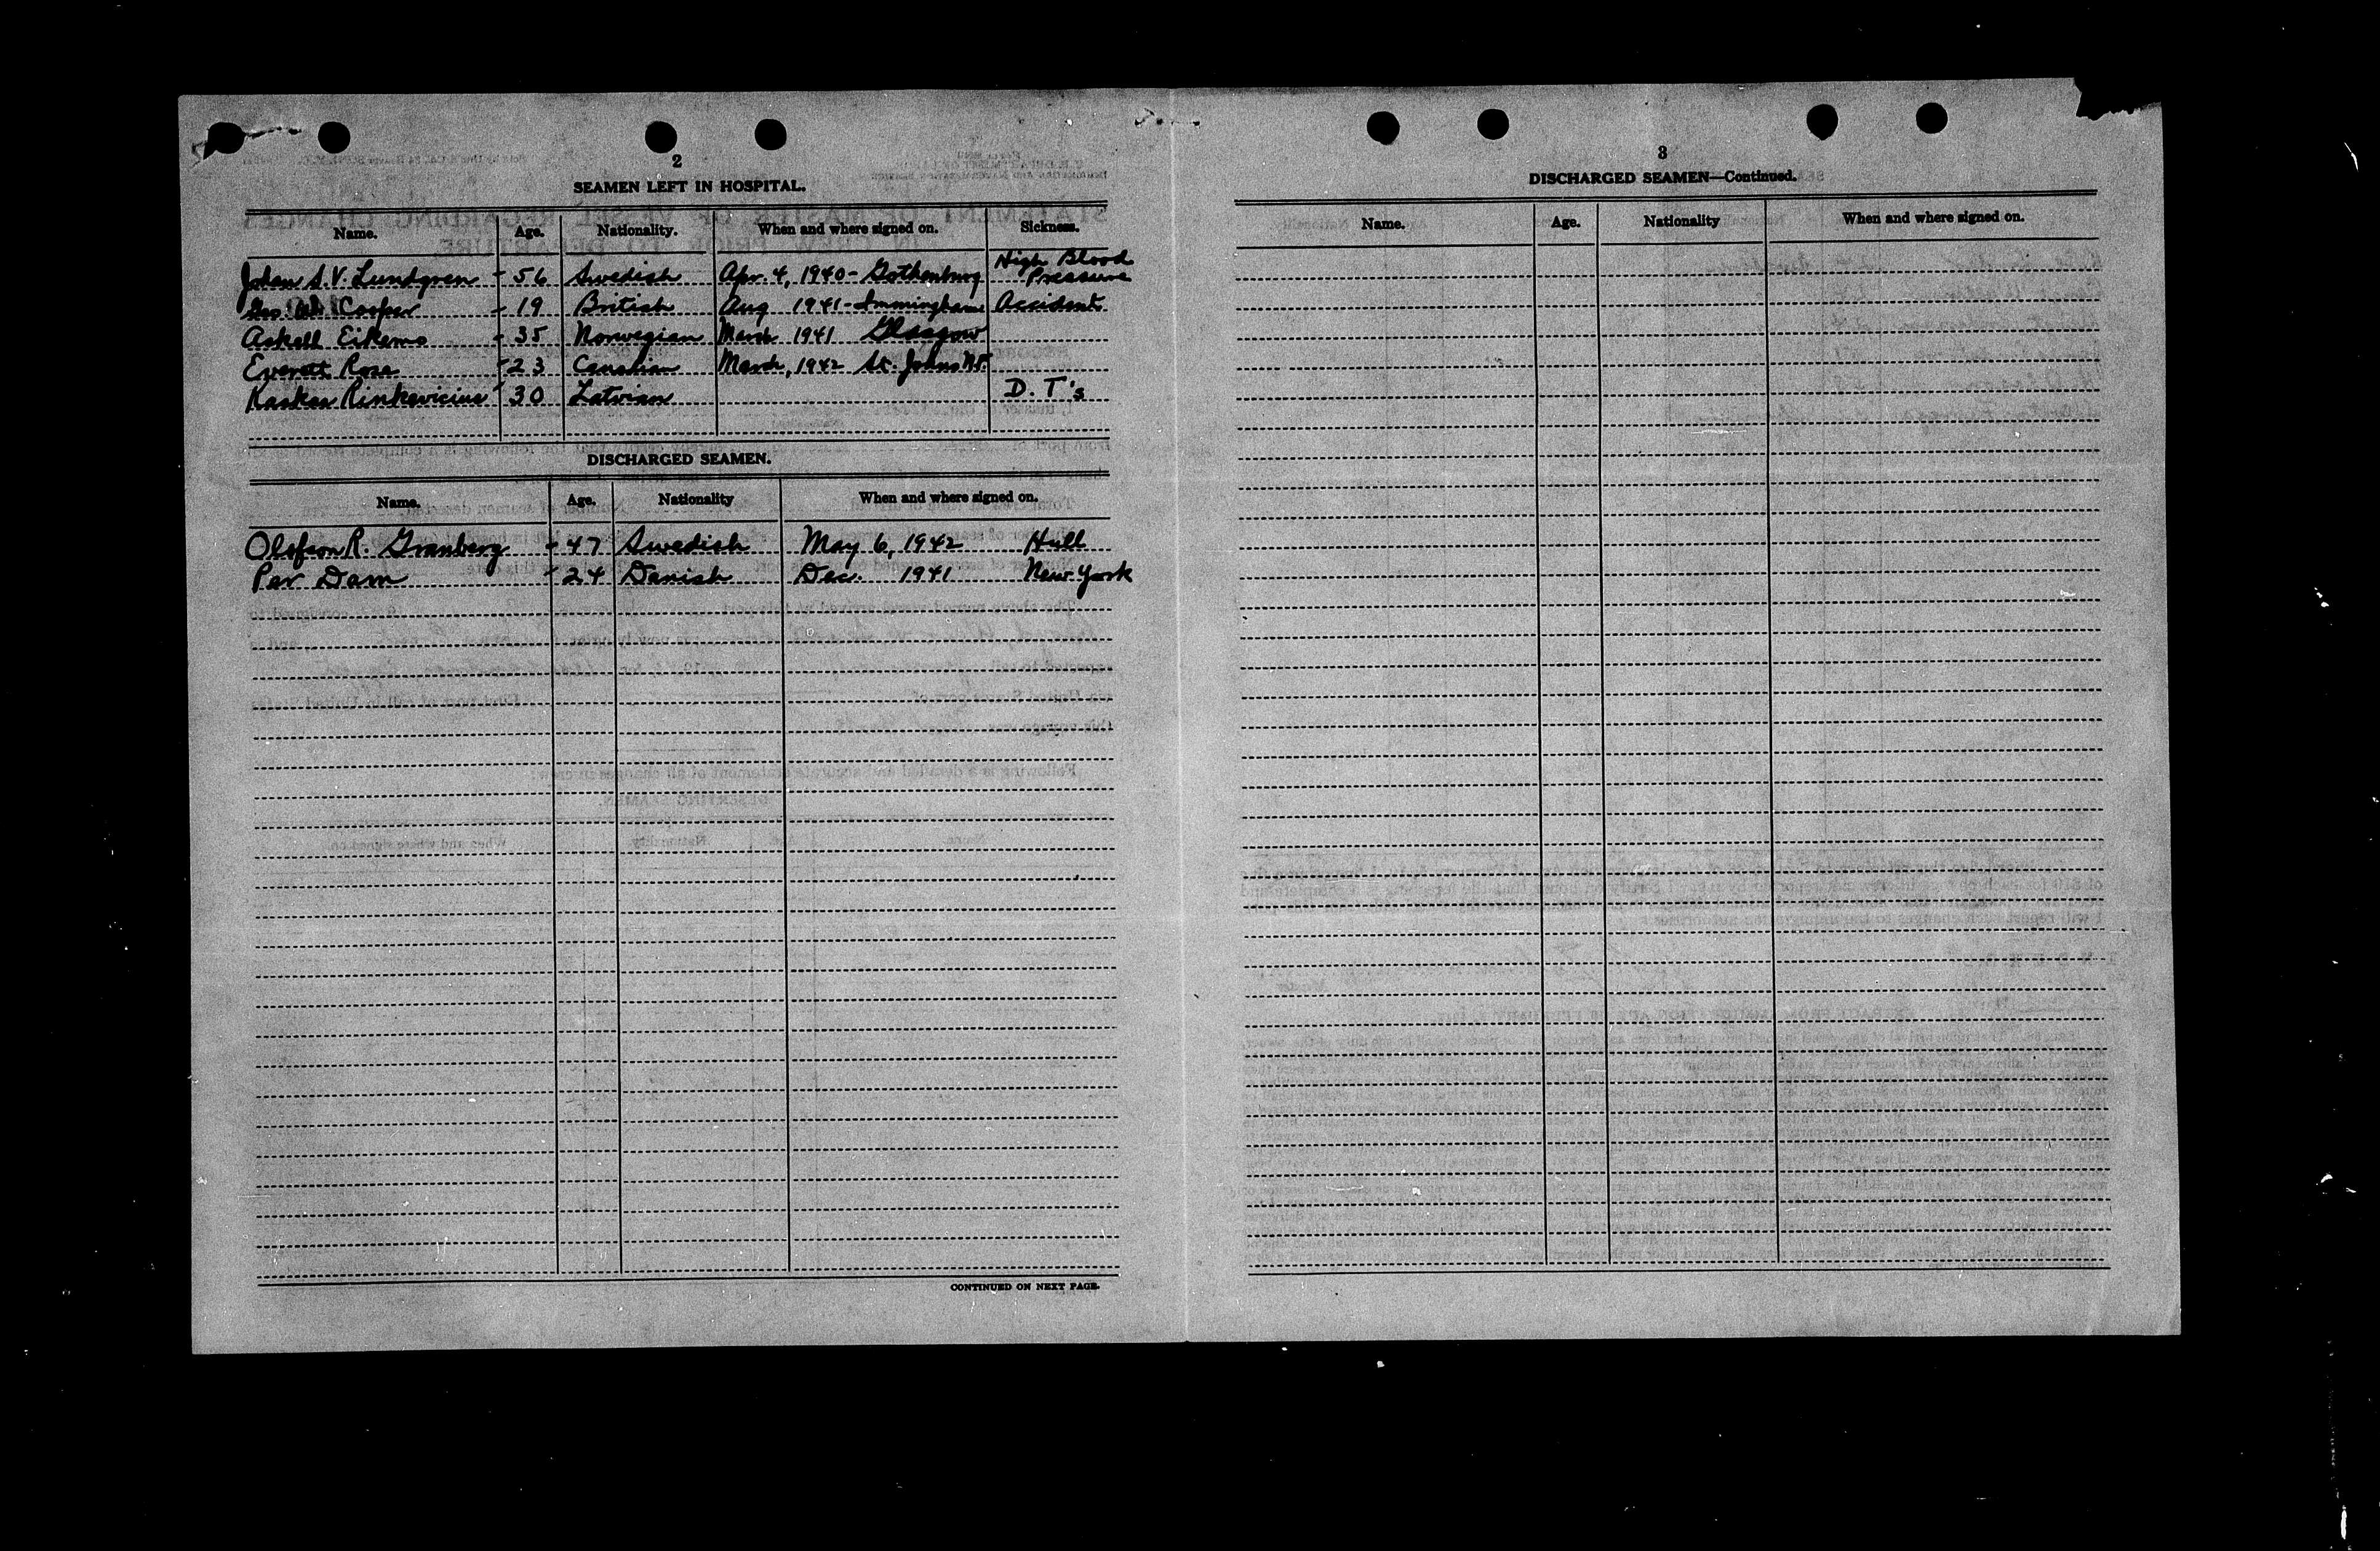 2
SEAMEN LEFT IN HOSPITAL.
Name. Age. Nationality. When and where signed on. Sickness.
Johan S.V. Lundgren - 56 Swedish Apr. 4, 1940 - Gothenburg High Blood Pressure
Geo. Cooper - 19 British Aug 1941 - Immingham Accident
Askell Eikemo - 35 Norwegian March 1941 Glasgow
Everett Rose - 23 Canadian March, 1942 St. Johns N.F.
Kaskas Rinkevicius - 30 Latvian D.T's
DISCHARGED SEAMEN.
Name. Age. Nationality When and where signed on.
Olofson R. Granberg - 47 Swedish May 6, 1942 Hull
Per Dam - 24 Danish Dec. 1941 New York
CONTINUED ON NEXT PAGE.
3
DISCHARGED SEAMEN—Continued.
Name. Age. Nationality When and where signed on.